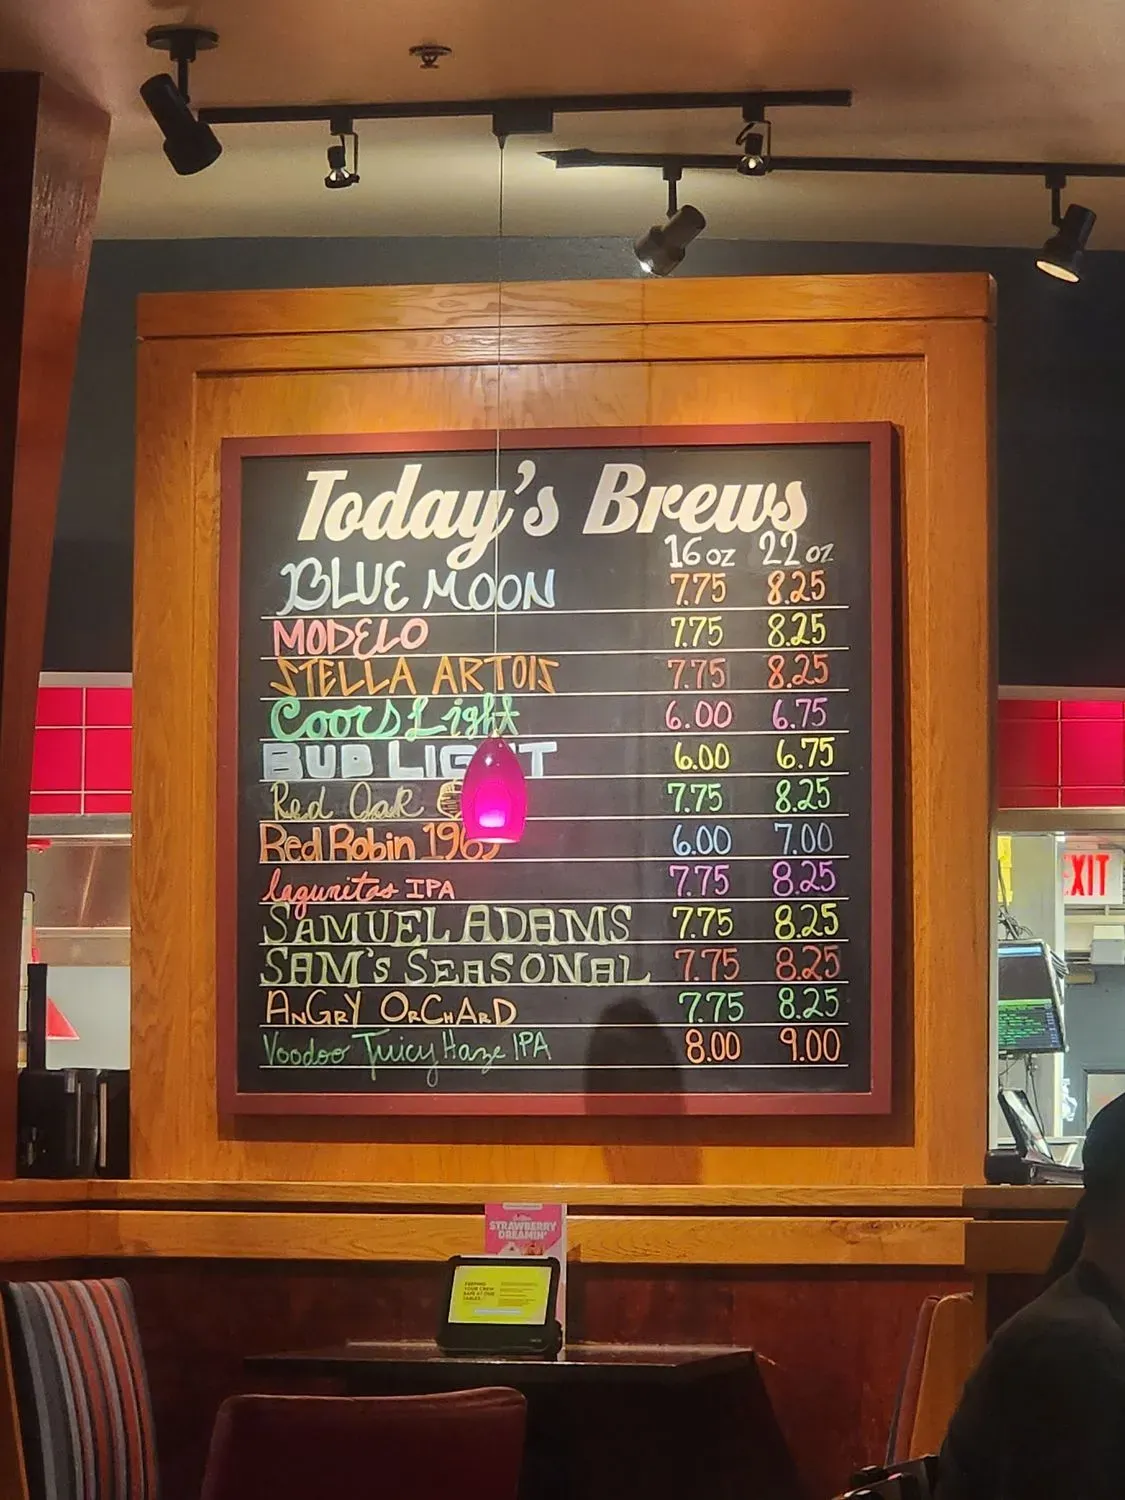 Today's Brews
16 oz 22 oz
BLUE MOON 7.75 8.25
MODELO 7.75 8.25
STELLA ARTOIS 7.75 8.25
Coors Light 6.00 6.75
BUD LIGHT 6.00 6.75
Red Oak 7.75 8.25
Red Robin 1969 6.00 7.00
lagunitas IPA 7.75 8.25
SAMUEL ADAMS 7.75 8.25
SAM's SEASONAL 7.75 8.25
ANGRY ORCHARD 7.75 8.25
Voodoo Juicy Haze IPA 8.00 9.00
EXIT
STRAWBERRY
DREAMIN'
KEEPING
YOUR CREW
SAFE AT OUR
TABLES